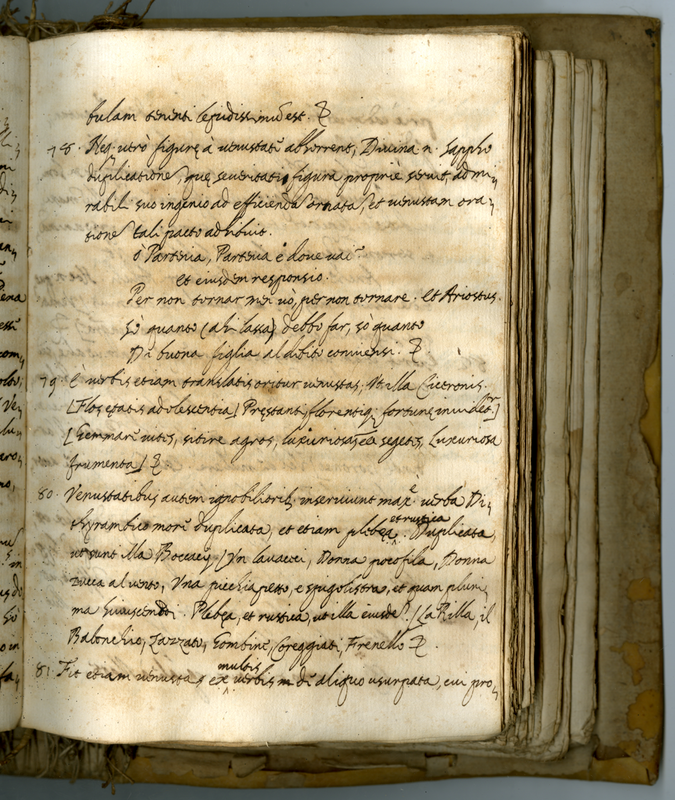 bulam tenenti lepidissimũ est. &
78. Neq. vtrò figurę à uenustati abhorrent, Diuina .n. Sappho
duplicatione, quę seueritatis figura propriè seruit, admi,
rabili suo ingenio ad efficiendã ornatã, et uenustam ora,
tionẽ tali pacto adhibuit.
ò Partenia, Partenia è doue uai
et eiusdem responsio.
Per non tornar mai uò, per non tornare. et Ariostus.
Sò quanto (ahi lassa) debbo far, sò quanto
Di buona figlia al debito conuiensi. &
79 E uerbis etiam translatis oritur uenustas, Vt illa Ciceronis.
[Flos ętatis adolescentia] Pręstanti, florentiq; fortunę inuidetr.]
[Gemmari uites, sitire agros, luxuriosa segetes, Luxuriosa
frumenta] &
80. Venustatibus autem ignobiliorib; inseruiunt maxe. uerba Di,
thyrambico more duplicata, et etiam plebęa et rustica. Duplicata,
ut sunt illa Bocacij [Vn lauacci, Donna pocofila, Donna
zucca al uento, Vna picchiapetto, e spigolistra, et quam pluri,
ma huiuscemodi. Plebęa, et rustica, ut illa eiusdẽ. [La Rilla, il
Balonchio, Zazzato, Gombine, Coreggiati, Frenello &.
81. Fit etiam uenusta, ex multis uerbis dũ aliquo usurpata, cui pro,